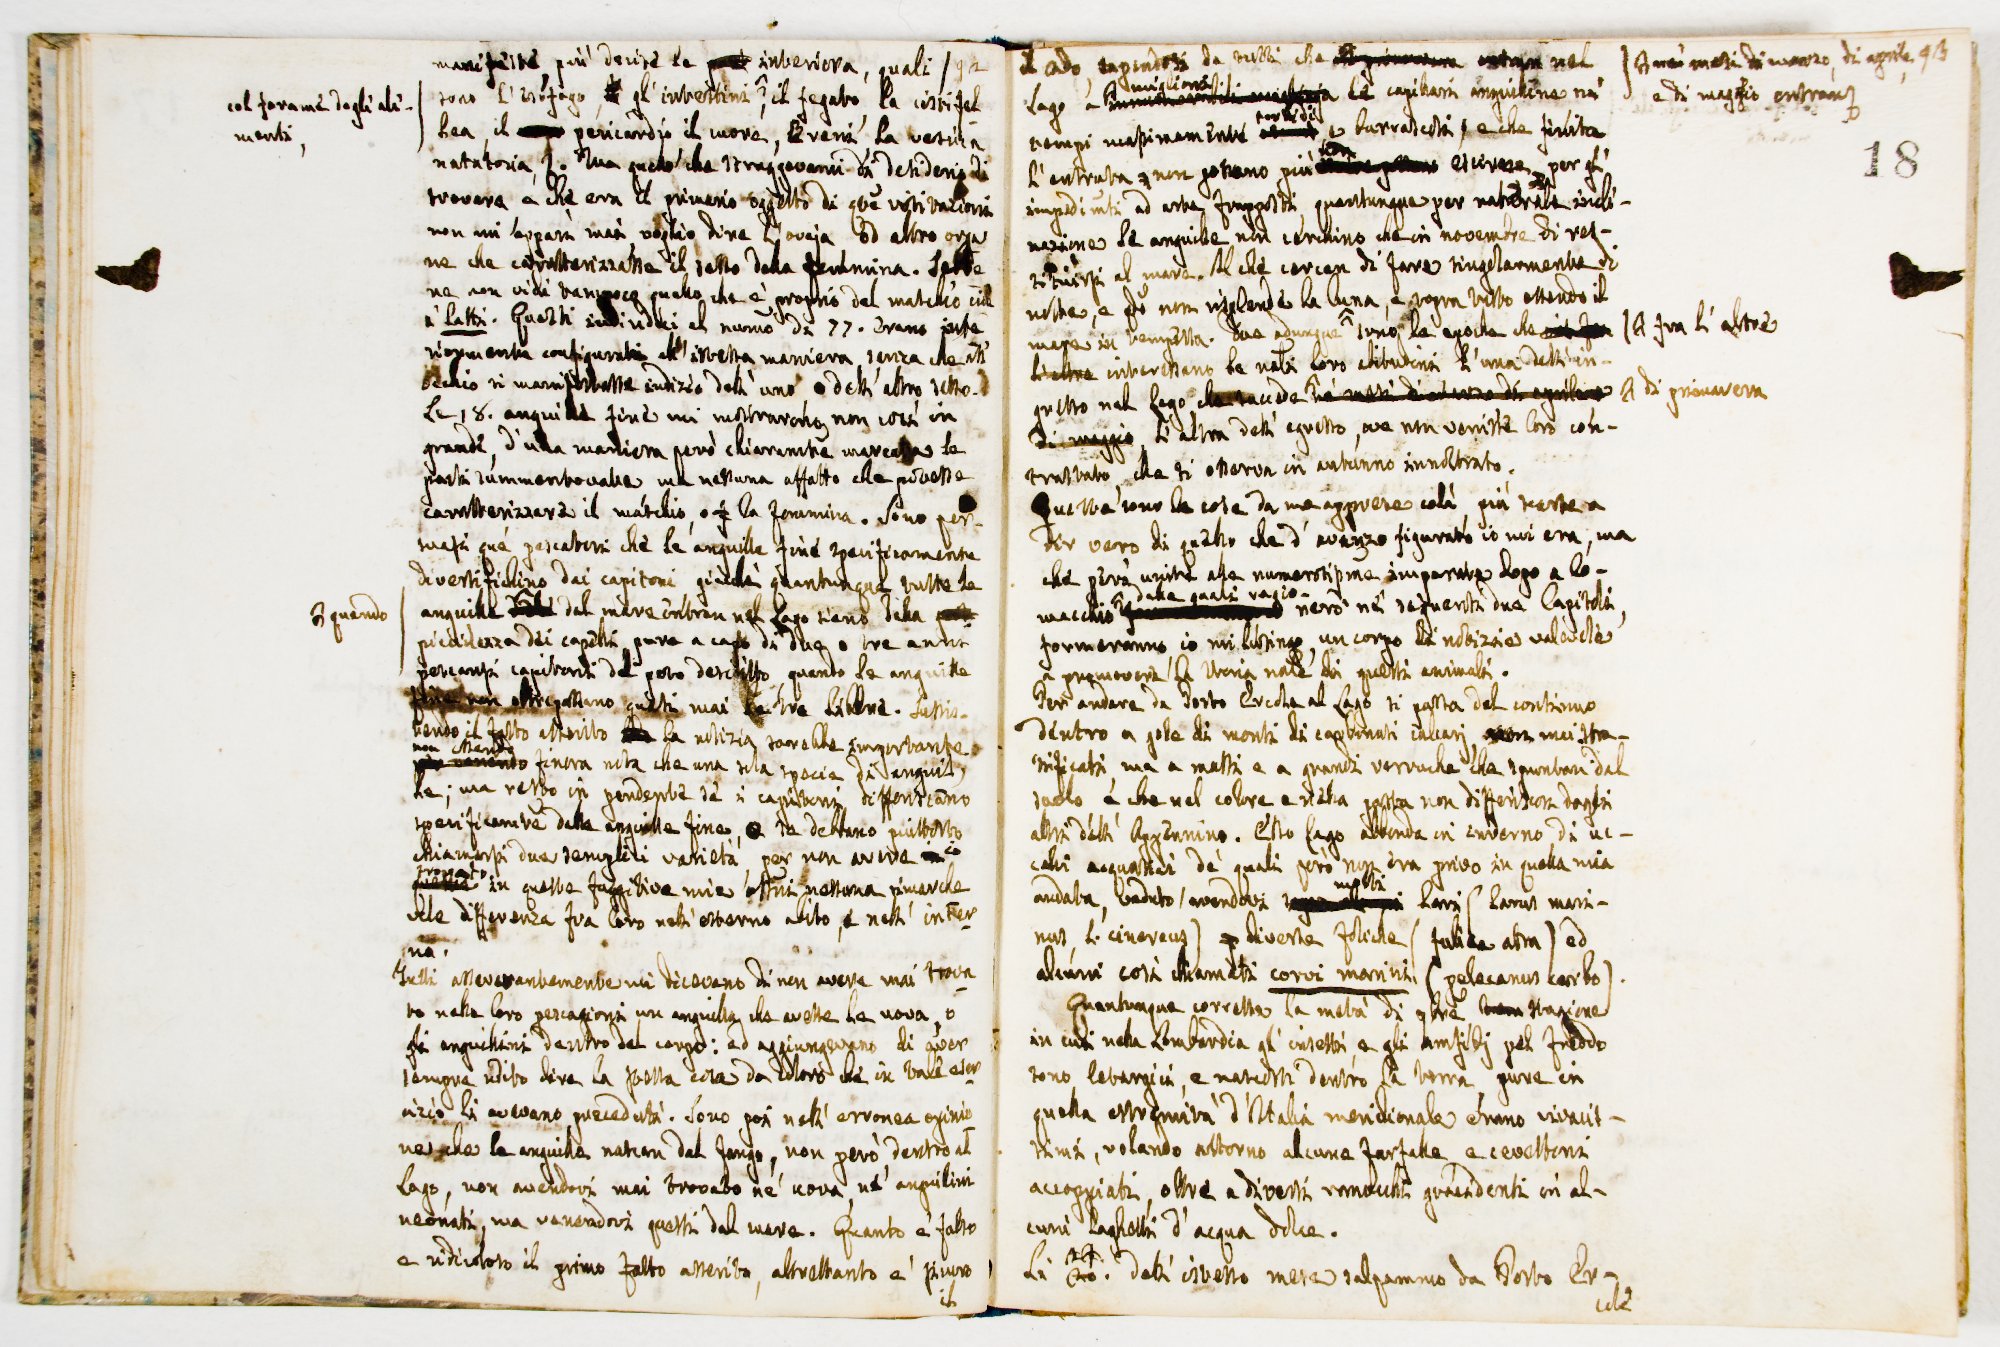 manifesté più decise le interiora, quali
sono l'esofago, gl'intestini, il fegato la cistifel
lea, il pericardio il cuore, i reni la vescica
natatoria, &. Ma quello che struggevami di desiderio di
trovare e che era il primario oggetto di qu.e visitazioni
non mi apparì mai, voglio dire l'ovaja od altro orga
ne che caratterizzasse il sesso della femmina. Sebbe
ne non vidi tampoco quello che è proprio del maschio cioè
i latti. Questi individui al num.o di 77. erano inte
riormente configurati all'istessa maniera senza che all'
occhio si manifestasse indizio dell'uno o dell'altro sesso.
Le 18. anguille fine mi mostrarono, non così in
grande, d'una maniera però chiaram.te marcata le
parti summentovate ma nessuna affatto che potesse
caratterizzare il maschio, o la femmina. Sono per-
suasi que' pescatori che le anguille fine specificamente
diversifichino dai capitoni giacchè quantunque tutte le
anguille dal mare entrin nel Lago sieno della
picciolezza dei capelli, pure a capo di due o tre anni
pescansi capitoni del peso descritto quando le anguille
fine non oltrepassano quasi mai le tre libbre. Sussis-
tendo il fatto asserito la notizia sarebbe importante
non essendo
finora nota che una sola specie di anguil-
le; ma resto in pendente se i capitoni differiscano
specificam.te dalle anguille fine, o se debbano piuttosto
chiamarsi due semplici varietà, per non avere io
trovato
in queste fuggitive mie oss.ni nessuna rimarche
vole differenza fra loro nell'esterno abito, e nell'inter
no.
Tutti asseverantemente mi dicevano di non avere mai trova
to nelle loro pescagioni un'anguilla che avesse le uova, o
gli anguillini dentro del corpo: ed aggiungevano di aver
sempre udito dire la stessa cosa da coloro che in tale eser
cizio li avevano preceduti. Sono poi nell'erronea opinio
ne che le anguille nascan dal fango, non però dentro al
Lago, non avendovi mai trovato nè uova, nè anguillini
neonati, ma venendovi questi dal mare. Quanto è falso
e ridicoloso il primo fatto asserito, altrettanto è sicuro
il
col forame degli ali-
menti,
quando
nel
migliori
Lago a le capillari anguilline nei
tempi massimamente torbidi e burrascosi, e che finita
l'entrata, non potranno più escirne, per gl'
impedim.ti ad arte frapposti, quantunque per naturale incli-
nazione le anguille non cerchino che in novembre di res-
tituirsi al mare. Il che cercan di fare singolarmente di
notte, e q.do non risplende la luna, e sopra tutto essendo il
mare in tempesta. Due adunque sono le epoche che
interessano le nali loro abitudini l'una dell'in-
gresso nel Lago che succede
di maggio, l'altra dell'egresso, ove non venisse loro con-
trastato, che si osserva in autunno innoltrato.
Queste sono le cose da me apprese colà, più scarse a
dir vero di quello che d'avanzo figurato io mi era, ma
che però unite alle numerosissime imparate dopo a Co-
macchio dalle quali ragio-
nerò nei seguenti due Capitoli,
formeranno io mi lusingo, un corpo di notizie valevole
a promovere la storia nale di questi animali.
Per andare da Porto Ercole al Lago si passa del continuo
dentro a gole di monti di carbonati calcarj, non mai stra-
tificati, ma a massi e a grandi verruche che spuntan dal
suolo e che nel colore e nella pasta non differiscon dagli
altri dell'Appennino. Esso Lago abbonda in inverno di uc-
celli acquatici de' quali però non era privo in quella mia
andata, veduto avendovi molti Lari (Larus mari-
nus, L. cinereus) diverse foliche (fulica atra) ed
alcuni così chiamati corvi marini. (pelecanus carbo).
Quantunque corresse la metà di 9bre stagione
in cui nella Lombardia gl'insetti, e gli amfibj pel freddo
sono letargici, e nascosti dentro la terra, pure in
quella estremità d'Italia meridionale erano vivacis-
simi, volando attorno alcune farfalle e cevettoni
accoppiati, oltre a diversi ranocchi gracidanti in al-
cuni laghetti d'acqua dolce.
Li 20. dell'istesso mese salpammo da Porto Er-
cole
nei mesi di marzo, di aprile,
e di maggio entrano
18
fra l'altre
di primavera